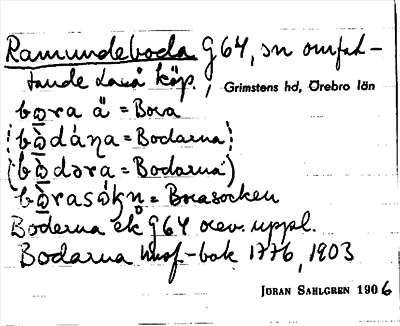 Ramundeboda G 64, sn omfat-
tande Laxå köp., Grimstens hd, Örebro län
bo̱ra ä = Bora
(bò̱dáṇa = Bodarna)
(bò̱dəra = Bodarna)
bò̱rasókṇ = Borasocken
Boderna ek G 64 orev. uppl.
Bodarna husf-bok 1776, 1903
JÖRAN SAHLGREN 1906